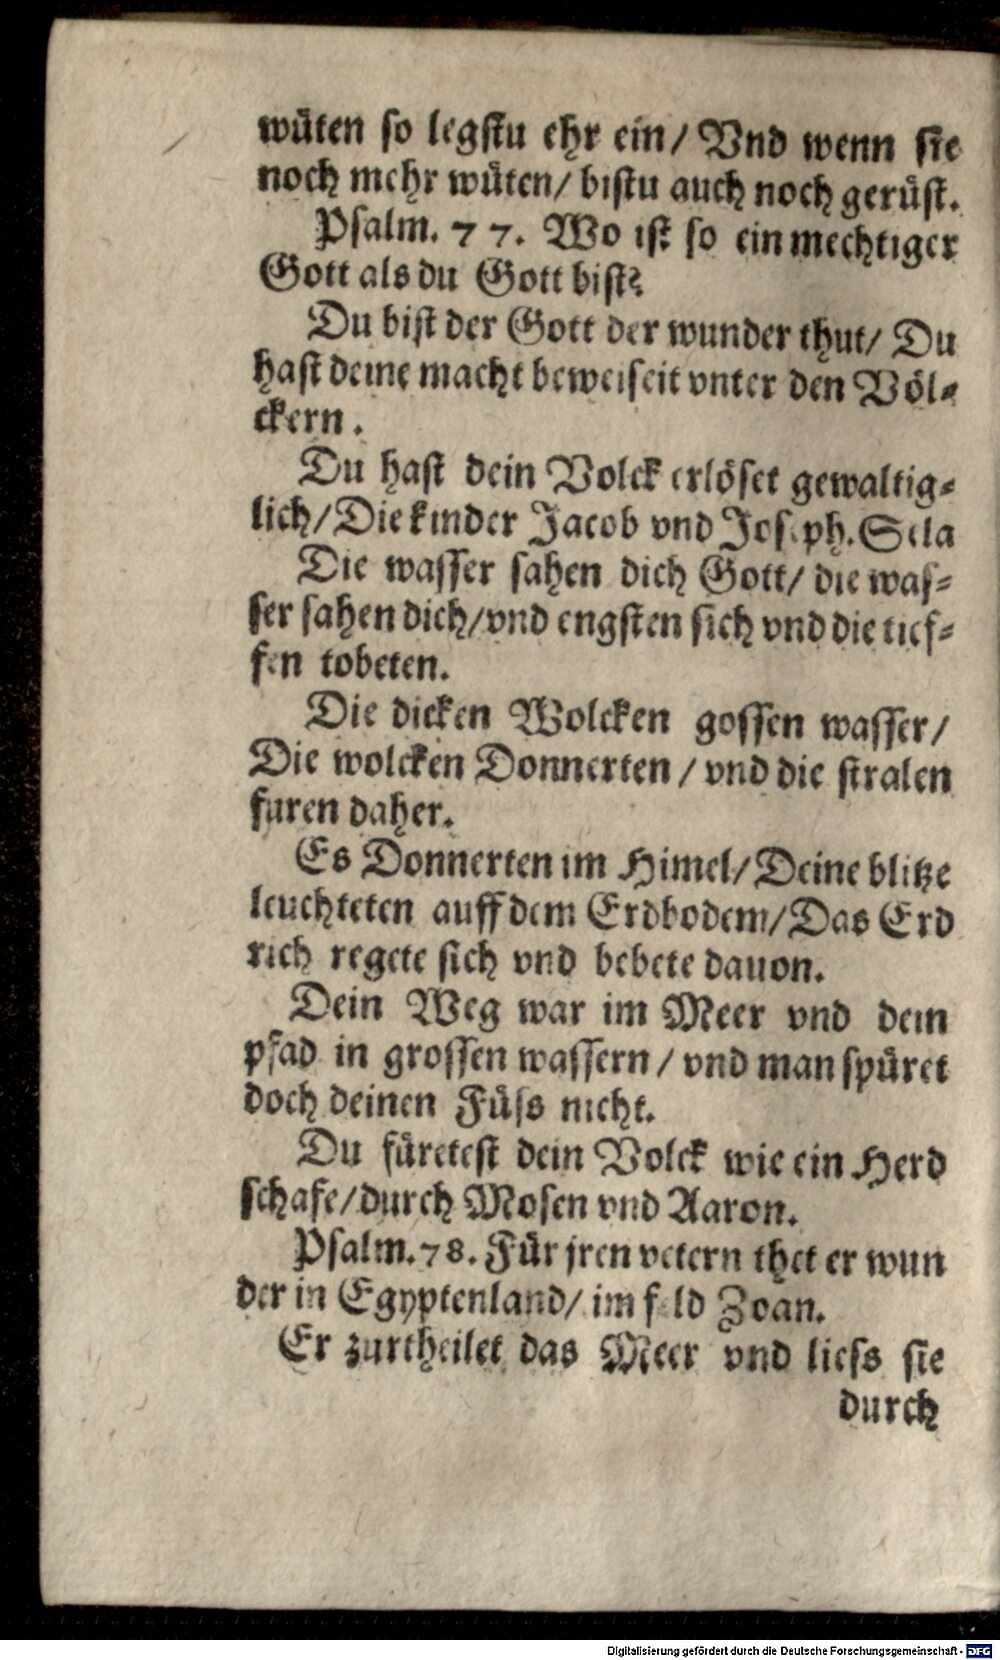 wüten so legstu ehr ein/ Vnd wenn sie
noch mehr wüten/ bistu auch noch gerüst.
Psalm. 77. Wo ist so ein mechtiger
Gott als du Gott bist?
Du bist der Gott der wunder thut/ Du
hast deine macht beweiseit vnter den Völ-
ckern.
Du hast dein Volck erlöset gewaltig-
lich/ Die kinder Jacob vnd Joseph. Sela
Die wasser sahen dich Gott/ die was-
ser sahen dich/ vnd engsten sich vnd die tief-
fen tobeten.
Die dicken Wolcken gossen wasser/
Die wolcken Donnerten/ vnd die stralen
furen daher.
Es Donnerten im Himel/ Deine blitze
leuchteten auff dem Erdbodem/ Das Erd
rich regete sich vnd bebete dauon.
Dein Weg war im Meer vnd dein
pfad in grossen wassern/ vnd man spüret
doch deinen Füss nicht.
Du füretest dein Volck wie ein Herd
schafe/ durch Mosen vnd Aaron.
Psalm. 78. Für jren vetern thet er wun
der in Egyptenland/ im feld Zoan.
Er zurtheilet das Meer vnd liess sie
durch
Digitalisierung gefördert durch die Deutsche Forschungsgemeinschaft - DFG